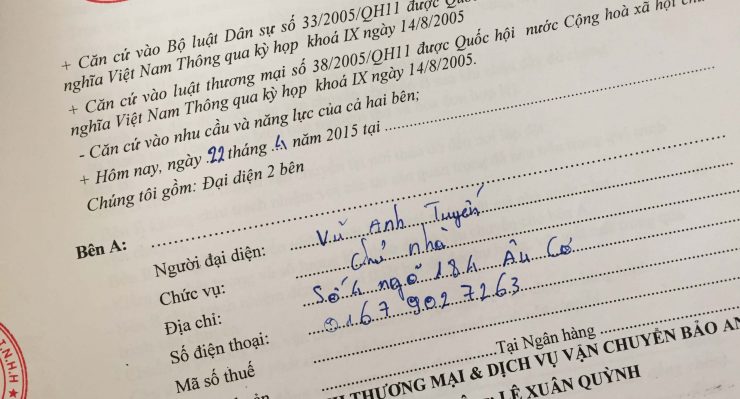 + Căn cứ vào Bộ luật Dân sự số 33/2005/QH11 được
nghĩa Việt Nam Thông qua kỳ họp khoá IX ngày 14/8/2005
+ Căn cứ vào luật thương mại số 38/2005/QH11 được Quốc hội nước Cộng hoà xã hội
nghĩa Việt Nam Thông qua kỳ họp khoá IX ngày 14/8/2005.
- Căn cứ vào nhu cầu và năng lực của cả hai bên;
+ Hôm nay, ngày 22 tháng 4 năm 2015 tại
Chúng tôi gồm: Đại diện 2 bên
Bên A:
Người đại diện: Vũ Anh Tuyến
Chức vụ: Chủ nhà
Địa chỉ: Số 4 ngõ 184 Âu Cơ
Số điện thoại: 0167 902 7263
Mã số thuế
Tại Ngân hàng
THƯƠNG MẠI & DỊCH VỤ VẬN CHUYỂN BẢO AN
LÊ XUÂN QUỲNH
T.N.H.H